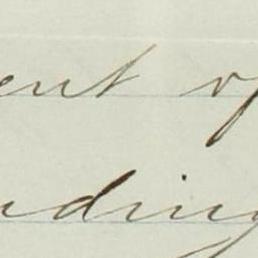 ent of
nding